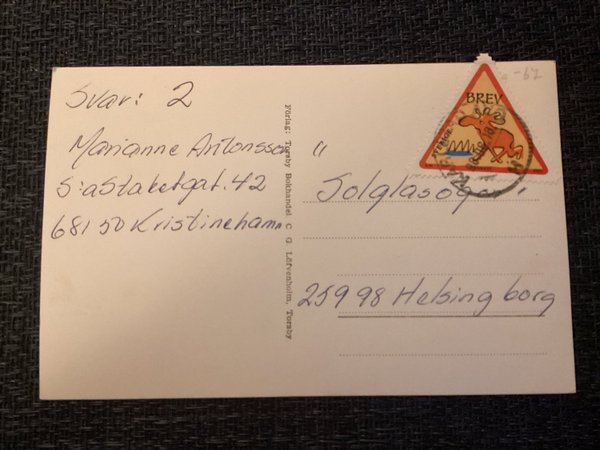 Svar: 2
Marianne Antonsson
S:a Staketgat. 42
681 50 Kristinehamn
Förlag: Torsby Bokhandel C G Löfvenholm, Torsby
BREV
SVERIGE
"Solglasögon"
259 98 Helsingborg